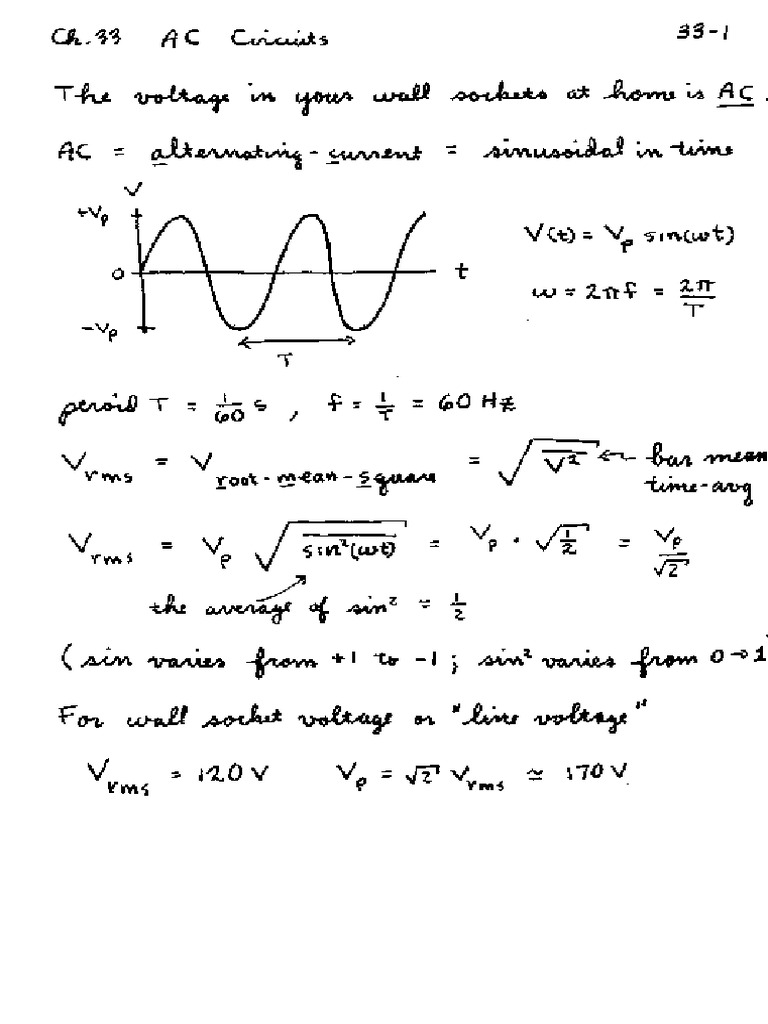 Ch. 33 AC Circuits 33-1
The voltage in your wall sockets at home is AC.
AC = alternating-current = sinusoidal in time
V
+Vp
0
-Vp
t
T
V(t) = Vp sin(ωt)
ω = 2πf = 2π/T
peroid T = 1/60 s , f = 1/T = 60 Hz
Vrms = Vroot-mean-square = √(V̅²) ← bar mean
time-avg
Vrms = Vp √(sin²(ωt)) = Vp · √(1/2) = Vp/√2
the average of sin² = 1/2
(sin varies from +1 to -1 ; sin² varies from 0→1
For wall socket voltage or "line voltage"
Vrms = 120 V Vp = √2 Vrms ≃ 170 V.